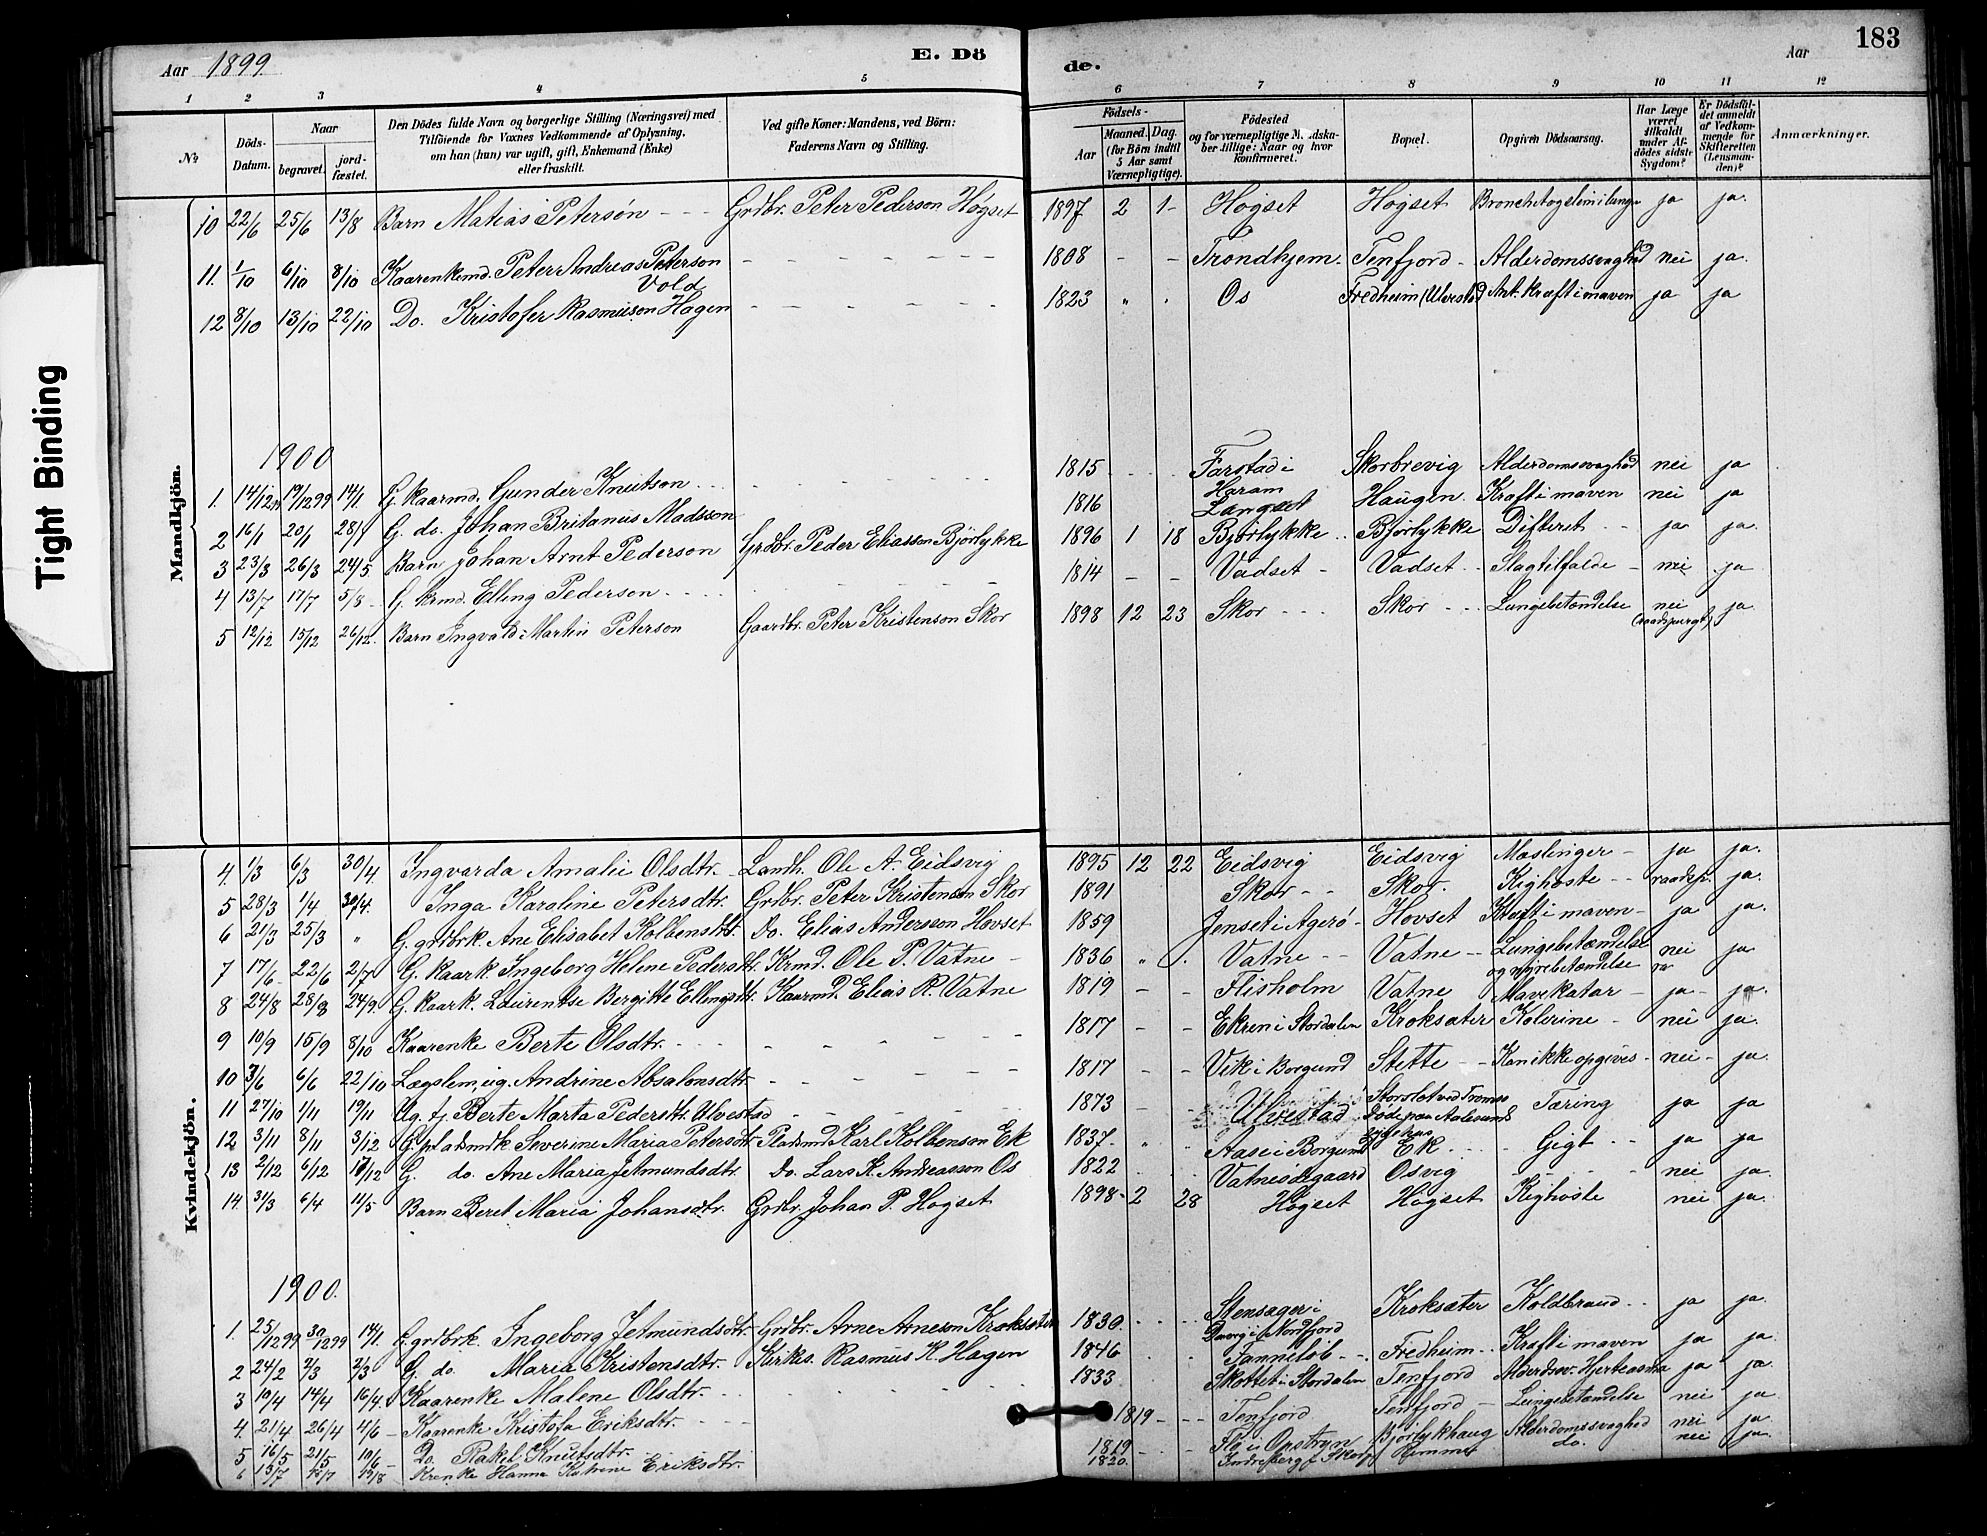 Aar 1899 E. Dö de. Aar 183
1 2 3 4 5 6 7 8 9 10 11 12
No. Döds-Datum. Naar begravet. jord-fæstet. Den Dödes fulde Navn og borgerlige Stilling (Næringsvei) med Tilföiende for Voxnes Vedkommende af Oplysning, om han (hun) var ugift, gift, Enkemand (Enke) eller fraskilt. Ved gifte Koner: Mandens, ved Börn: Faderens Navn og Stilling. Födsels- Aar Maaned. Dag. (for Börn indtil 5 Aar samt Værnepligtige). Födested og for værnepligtige Mandskaber tillige: Naar og hvor konfirmeret. Bopæl. Opgiven Dödsaarsag. Har Læge været tilkaldt under Afdödes sidste Sygdom? Er Dödsfaldet anmeldt af Vedkommende for Skifteretten (Lensmanden)? Anmærkninger.
Tight Binding
Mandkjön.
10 22/6 25/6 13/8 Barn Matias Petersøn - - - Grdbr. Peter Pederson Høgset 1897 2 1 Høgset Høgset ja ja.
11. 1/10 6/10 8/10 Kaarenkemd. Peter Andreas Peterson Vold 1808 - - Trondhjem. Tenfjord - Alderdomssvaghed nei ja.
12 8/10 13/10 22/10 Do. Kristofer Rasmuson Hagen 1823 " . Os Fredheim (Ulvestad) Ant. kræft i maven ja ja
1900
1. 14/12 99 19/12 99 14/1. G. kaarmd. Gunder Knutson 1815 Farstad i Haram Skorbrevig Alderdomssvaghed nei ja
2 16/1 20/1 28/1 G. do. Johan Britanus Madsson 1816 Langset Haugen. Kræft i maven nei ja
3 23/3 26/3 24/5. Barn Johan Arnt Pederson Grdbr. Peder Eliasson Bjørlykke 1896 1 18 Bjørlykke Bjørlykke Difteret - - ja ja.
4 13/7 17/7 5/8 G. krmd. Elling Pederson 1814 - - Vadset - Vadset Slagtilfælde - nei ja
5 12/12 15/12 26/12. Barn Ingvald Martin Peterson Gaardbr. Peter Kristenson Skor 1898 12 23 Skor - - - Skor - - - Lungebetændelse nei (raadspurgt) ja
Kvindekjön.
4. 1/3 6/3 30/4. Ingvarda Amalie Olsdtr. Landh. Ole A. Eidsvig 1895 12 22 Eidsvig Eidsvig Mæslinger - ja ja.
5 28/3 1/4 30/4. Inga Karoline Petersdtr. Grdbr. Peter Kristenson Skor 1891 Skor - - Skor. Kighoste - - raadsp. ja.
6 21/3 25/3 " G. grdbrk. Ane Elisabet Kolbensdtr. Do. Elias Andersson Hovset 1859 Jenset i Agerø - Hovset Kræft i maven - ja ja.
7 17/6 22/6 2/7 G. kaark. Ingeborg Helene Pedersdtr. Krmd. Ole P. Vatne - 1836 " . Vatne - - Vatne - - Lungebetændelse og nyrebetændelse nei ja.
8 24/8 28/8 24/9. G. kaark. Laurentse Bergitte Ellingsdtr. Kaarmd. Elias R. Vatne 1819 - - Flisholm Vatne Mavekatar - ja - ja.
9 10/9 15/9 8/10 Kaarenke Berte Olsdtr. 1817 - - Ekren i Stordalen Kroksæter Kolerine - nei ja.
10 3/6 6/6 22/10 Lægslem, ug. Andrine Absalonsdtr. 1817 - - Vik i Borgund Stette - - Kan ikke opgives - nei - ja.
11 27/10 1/11 19/11 Ug. tj. Berte Marta Pedersdtr. Ulvestad 1873 - - Ulvestad Storslot ved Tromsø Døde paa Aalesunds sygehus Tæring ja ja
12 3/11 8/11 3/12 G. pladsmdk. Severine Maria Petersdtr. Pladsmd. Karl Kolbenson Ek 1837. " Aase i Borgund Ek Gigt ja ja
13 2/12 6/12 17/12 G. do. Ane Maria Jetmundsdtr. Do. Lars K. Andreasson Os 1822 Vatneødegaard Osvig - - - nei ja.
14. 31/3 6/4 11/5 Barn Beret Maria Johansdtr. Grdbr. Johan P. Høgset 1898 2 28 Høgset Høgset Kighoste nei ja.
1900.
1. 25/12 99 30/12 99 14/1. G. grdbrk. Ingeborg Jetmundsdtr. Grdbr. Arne Arneson Kroksæter 1830. Stensager i Nordfjord Kroksæter Koldbrand ja ja.
2 24/2 2/3 2/3 G. do. Maria Kristensdtr. Kirks. Rasmus K. Hagen 1846 Tanneløb - Fredheim - Kræft i maven ja ja.
3 10/4 14/4 16/4. Kaarenke Malene Olsdtr. 1833 Skottet i Stordalen Tenfjord ja ja.
4. 21/4 26/4 4/6 Kaarenke Kristofa Eriksdtr. 1819 - - - Tenfjord Tenfjord - Lungebetændelse nei ja.
5 16/5 21/5 10/6 Do. Rakel Knutsdtr. 1819 Flo i Opstryn Bjørlykhaug Alderdomssvaghed nei ja.
6 13/7 18/7 19/8 Krenke Hanna Katrine Eriksdtr. 1820. do. nei ja.